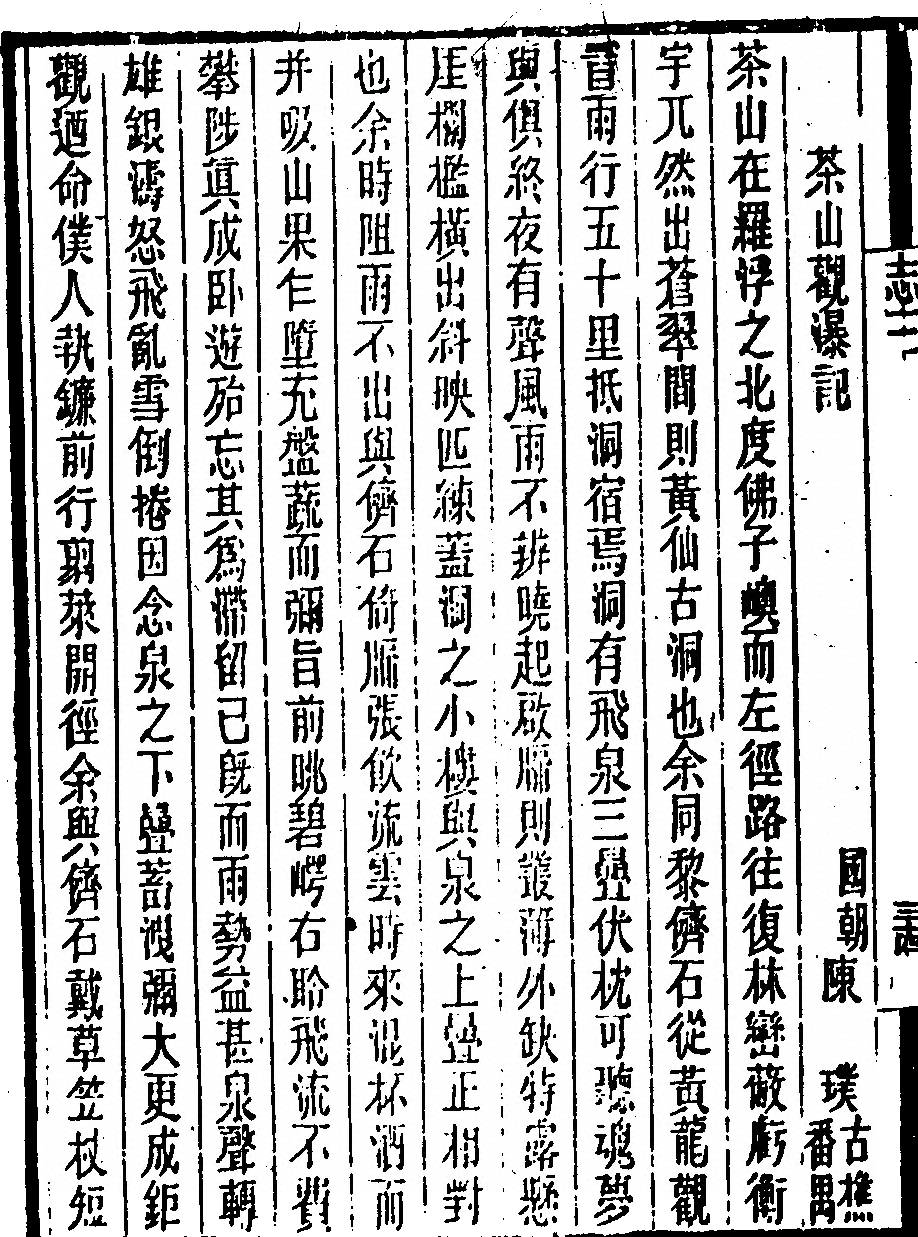 茶山觀瀑記
國朝陳 璞 古樵 番禺
茶山在羅浮之北度佛子嶼而左徑路往復林巒蔽虧衡
宇兀然出蒼翠間則黃仙古洞也余同黎儕石從黃龍觀
冒雨行五十里抵洞宿焉洞有飛泉三疊伏枕可聽魂夢
與俱終夜有聲風雨不辨曉起啟牖則叢薄外缺特露懸
崖欄檻橫出斜映匹練蓋洞之小樓與泉之上疊正相對
也余時阻雨不出與儕石倚牖張飲流雲時來混杯酒而
并吸山果乍墮充盤蔬而彌旨前眺碧崿右聆飛流不費
攀陟眞成臥遊殆忘其爲滯留已旣而雨勢益甚泉聲轉
雄銀濤怒飛亂雪倒捲因念泉之下疊蓄洩彌大更成鉅
觀迺命僕人執鐮前行剪萊開徑余與儕石戴草笠杖短
志十一